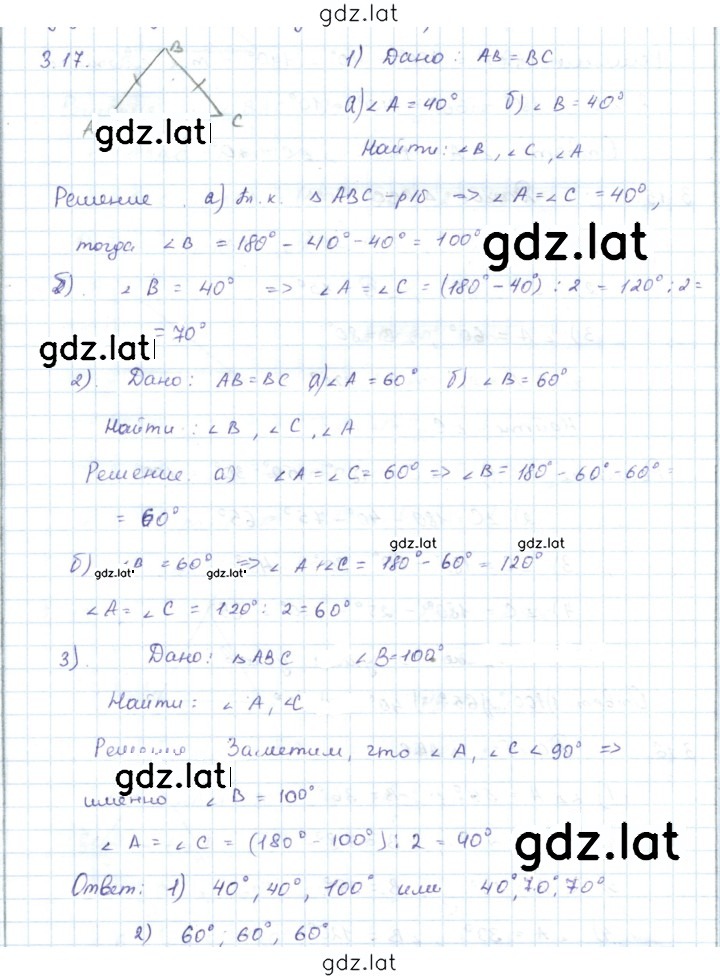 gdz.lat
3.17.
B
A
C
gdz.lat
1) Дано: AB = BC
а) ∠ A = 40° б) ∠ B = 40°
Найти: ∠B, ∠C, ∠A
Решение. а) т.к. △ ABC – р/б => ∠ A = ∠ C = 40°,
тогда ∠ B = 180° - 40° - 40° = 100°
gdz.lat
б). ∠ B = 40° => ∠ A = ∠ C = (180° - 40°) : 2 = 120° : 2 =
= 70°
gdz.lat
2). Дано: AB = BC а) ∠ A = 60° б) ∠ B = 60°
Найти: ∠ B, ∠ C, ∠ A
Решение. а) ∠ A = ∠ C = 60° => ∠ B = 180° - 60° - 60° =
= 60°
gdz.lat gdz.lat
б) B = 60° => ∠ A + ∠C = 180° - 60° = 120°
gdz.lat gdz.lat
∠ A = ∠ C = 120° : 2 = 60°
3). Дано: △ ABC ∠ B = 100°
Найти: ∠ A, ∠C
Решение Заметим, что ∠ A, ∠ C < 90° =>
gdz.lat
именно ∠ B = 100°
∠ A = ∠ C = (180° - 100°) : 2 = 40°
gdz.lat
Ответ: 1) 40°, 40°, 100° или 40°, 70°, 70°
2) 60°; 60°, 60°
gdz.lat